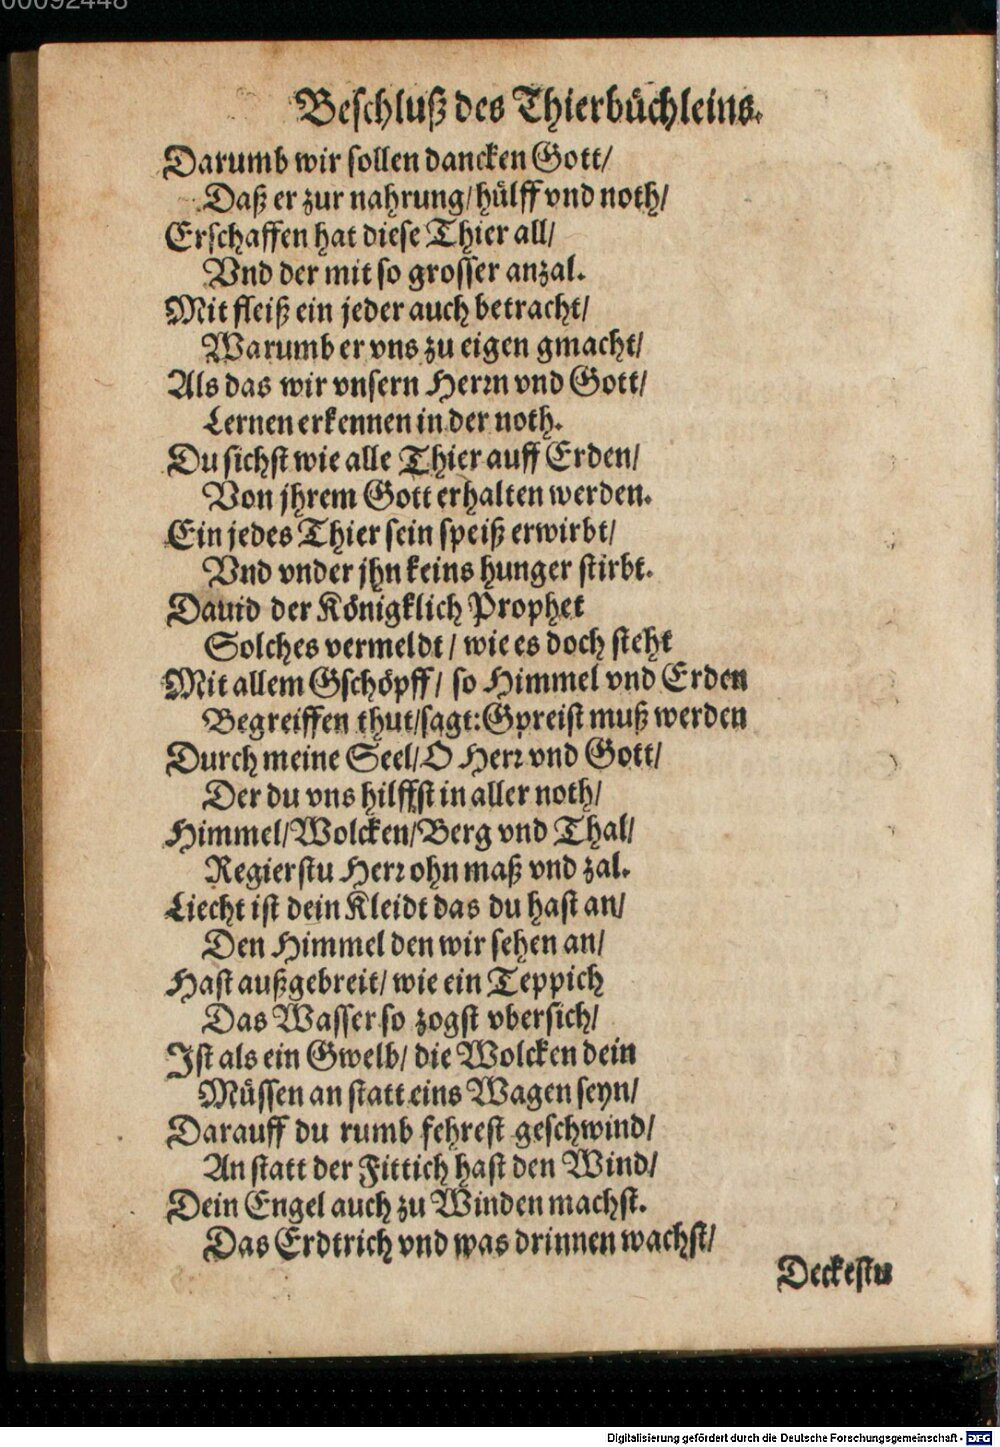 00092448
Beschluß des Thierbüchleins.
Darumb wir sollen dancken Gott/
Daß er zur nahrung/hülff vnd noth/
Erschaffen hat diese Thier all/
Vnd der mit so grosser anzal.
Mit fleiß ein jeder auch betracht/
Warumb er vns zu eigen gmacht/
Als das wir vnsern Herrn vnd Gott/
Lernen erkennen in der noth.
Du sichst wie alle Thier auff Erden/
Von jhrem Gott erhalten werden.
Ein jedes Thier sein speiß erwirbt/
Vnd vnder jhn keins hunger stirbt.
Dauid der Königklich Prophet
Solches vermeldt / wie es doch steht
Mit allem Gschöpff/ so Himmel vnd Erden
Begreiffen thut/sagt: Gpreist muß werden
Durch meine Seel/O Herr vnd Gott/
Der du vns hilffst in aller noth/
Himmel/Wolcken/Berg vnd Thal/
Regierstu Herr ohn maß vnd zal.
Liecht ist dein Kleidt das du hast an/
Den Himmel den wir sehen an/
Hast außgebreit/ wie ein Teppich
Das Wasser so zogst vbersich/
Ist als ein Gwelb/ die Wolcken dein
Müssen an statt eins Wagen seyn/
Darauff du rumb fehrest geschwind/
An statt der Fittich hast den Wind/
Dein Engel auch zu Winden machst.
Das Erdtrich vnd was drinnen wachst/
Deckestu
Digitalisierung gefördert durch die Deutsche Forschungsgemeinschaft - DFG